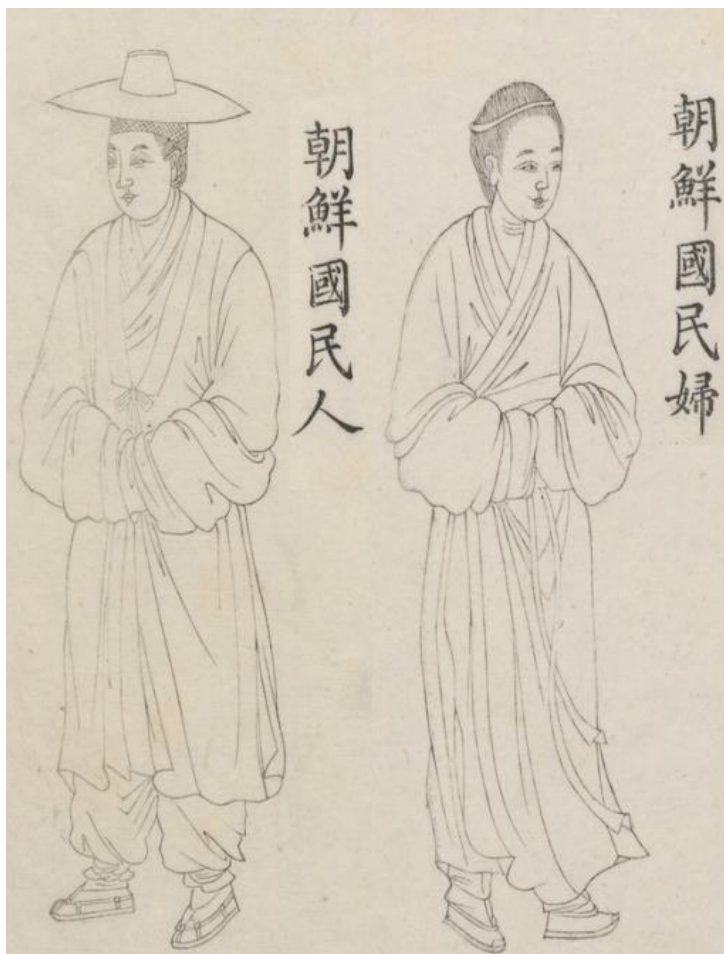 朝鮮國民婦
朝鮮國民人